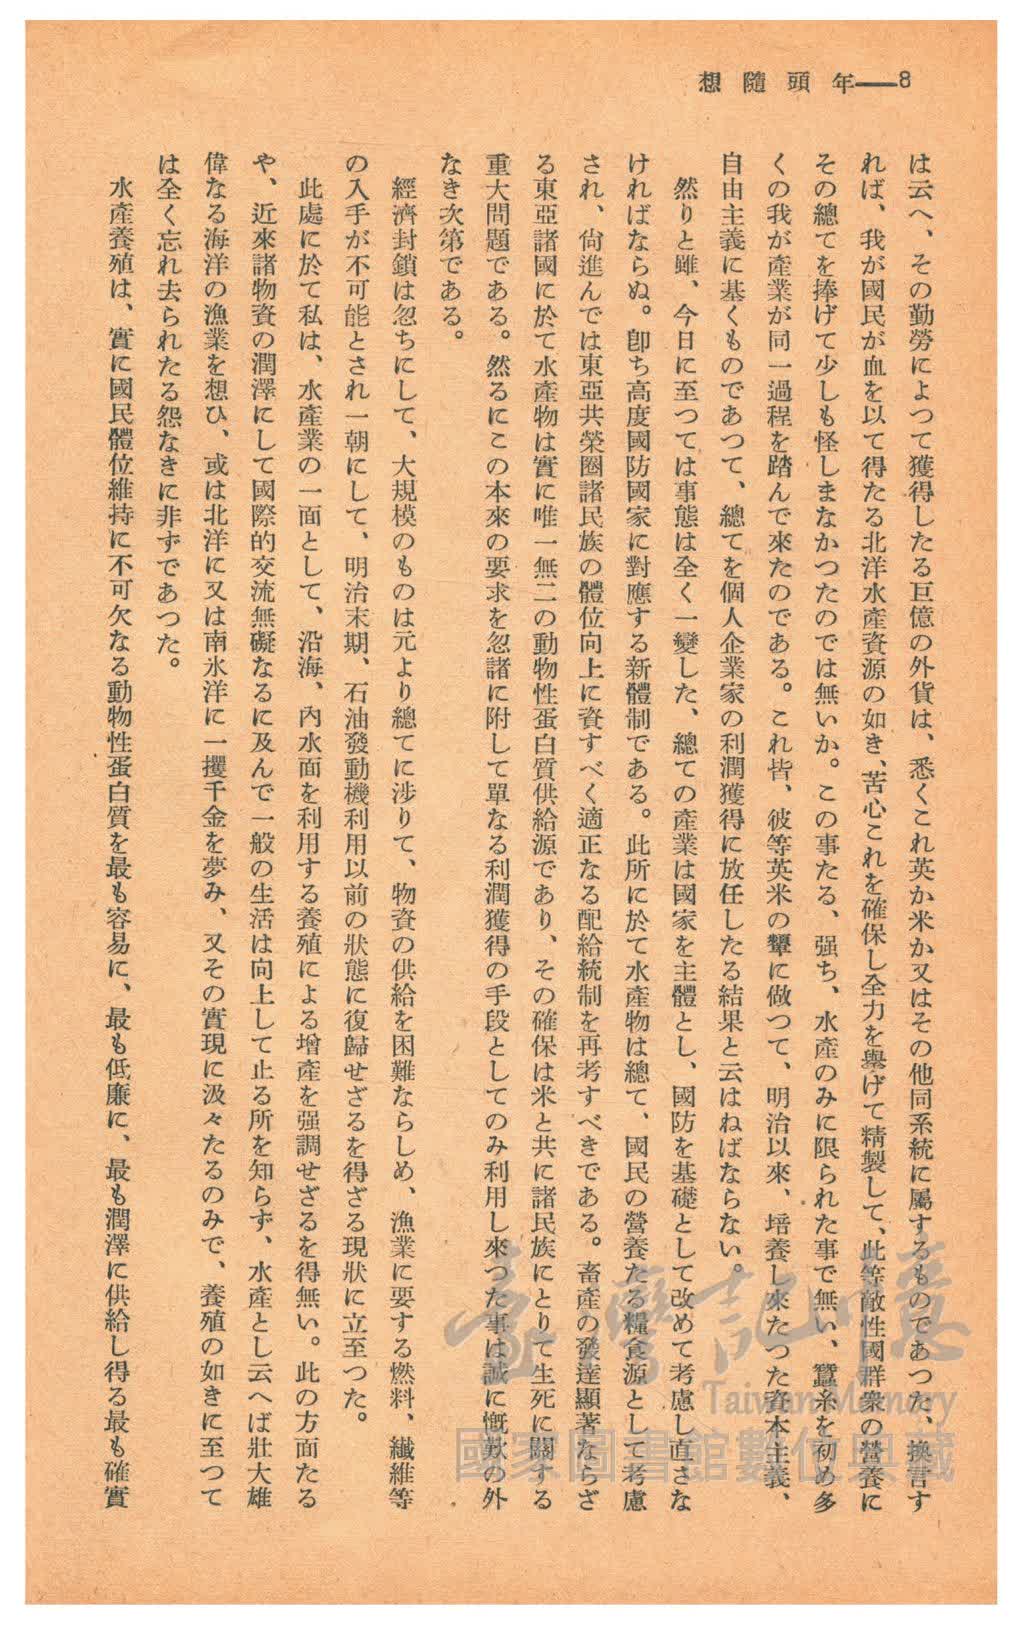 8——年頭隨想
は云へ、その勤勞によつて獲得したる巨億の外貨は、悉くこれ英か米か又はその他同系統に屬するものであつた、換言す
れば、我が國民が血を以て得たる北洋水產資源の如き、苦心これを確保し全力を擧げて精製して、此等敵性國群衆の營養に
その總てを捧げて少しも怪しまなかつたのでは無いか。この事たる、强ち、水產のみに限られた事で無い、蠶糸を初め多
くの我が產業が同一過程を踏んで來たのである。これ皆、彼等英米の顰に做つて、明治以來、培養し來たつた資本主義、
自由主義に基くものであつて、總てを個人企業家の利潤獲得に放任したる結果と云はねばならない。
然りと雖、今日に至つては事態は全く一變した、總ての產業は國家を主體とし、國防を基礎として改めて考慮し直さな
ければならぬ。卽ち高度國防國家に對應する新體制である。此所に於て水產物は總て、國民の營養たる糧食源として考慮
され、尙進んでは東亞共榮圈諸民族の體位向上に資すべく適正なる配給統制を再考すべきである。畜產の發達顯著ならざ
る東亞諸國に於て水產物は實に唯一無二の動物性蛋白質供給源であり、その確保は米と共に諸民族にとりて生死に關する
重大問題である。然るにこの本來の要求を忽諸に附して單なる利潤獲得の手段としてのみ利用し來つた事は誠に慨歎の外
なき次第である。
經濟封鎖は忽ちにして、大規模のものは元より總てに涉りて、物資の供給を困難ならしめ、漁業に要する燃料、纖維等
の入手が不可能とされ一朝にして、明治末期、石油發動機利用以前の狀態に復歸せざるを得ざる現狀に立至つた。
此處に於て私は、水產業の一面として、沿海、內水面を利用する養殖による增產を强調せざるを得無い。此の方面たる
や、近來諸物資の潤澤にして國際的交流無礙なるに及んで一般の生活は向上して止る所を知らず、水產とし云へば壯大雄
偉なる海洋の漁業を想ひ、或は北洋に又は南氷洋に一攫千金を夢み、又その實現に汲々たるのみで、養殖の如きに至つて
は全く忘れ去られたる怨なきに非ずであつた。
水產養殖は、實に國民體位維持に不可欠なる動物性蛋白質を最も容易に、最も低廉に、最も潤澤に供給し得る最も確實
臺灣記憶
Taiwan Memory
國家圖書館數位典藏